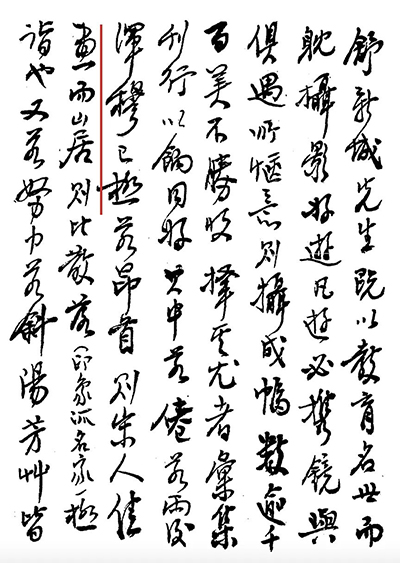 舒新城先生既以教育名世而
耽攝影好遊凡遊必攜鏡與
俱遇所愜意則攝成幅數逾千
百美不勝收擇其尤者彙集
刊行以餉同好其中若倦若雨後
渾穆已極若昂首則宋人佳
畫而山居則比散落（印象派名家）極
詣也又若努力若斜陽芳艸皆